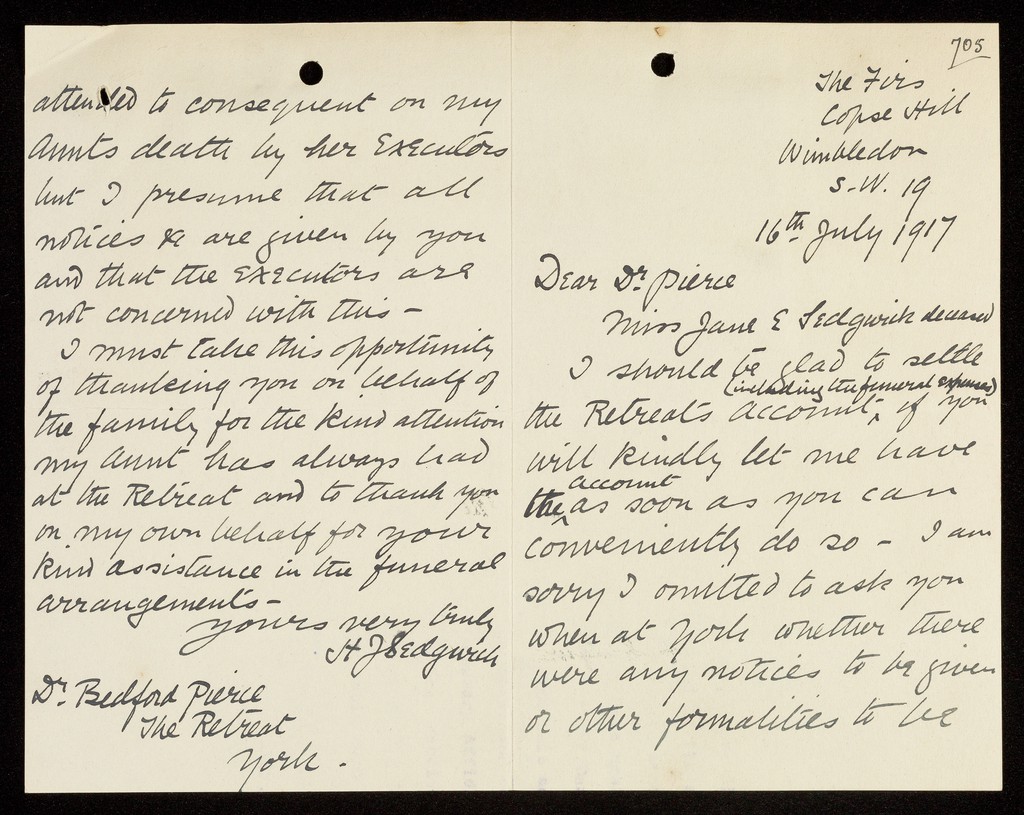 705
The Firs
Copse Hill
Wimbledon
S.W. 19
16th July 1917
Dear Dr. Pierce
Miss Jane E Sedgwick deceased
I should be glad to settle
(including the funeral expenses)
the Retreat's Account, if you
will kindly let me have
account
the as soon as you can
conveniently do so - I am
sorry I omitted to ask you
when at York whether there
were any notices to be given
or other formalities to be
attended to consequent on my
Aunts death by her Executors
but I presume that all
notices &c are given by you
and that the Executors are
not concerned with this -
I must take this opportunity
of thanking you on behalf of
the family for the kind attention
my Aunt has always had
at the Retreat and to thank you
on my own behalf for your
kind assistance in the funeral
arrangements -
yours very truly
H J Sedgwick
Dr. Bedford Pierce
The Retreat
York.